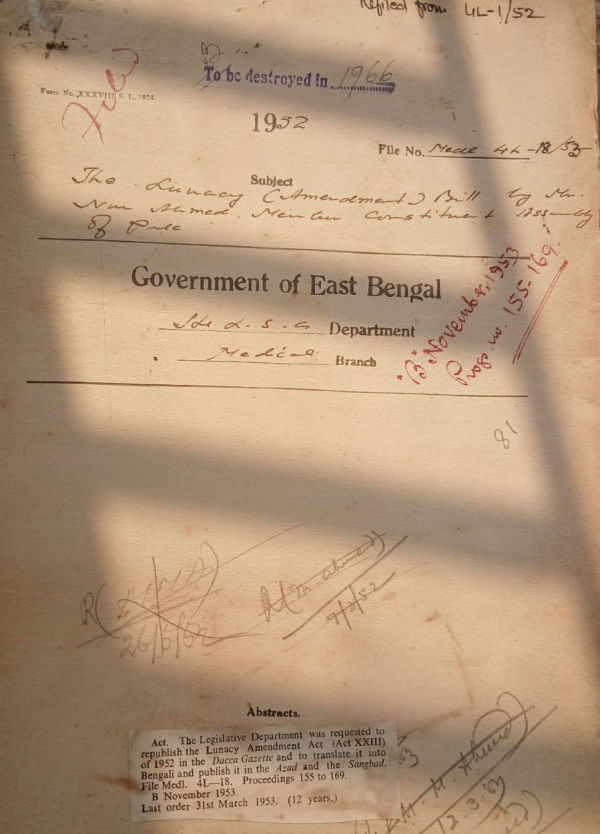 Refiled from 4L-1/52
B
To be destroyed in 1966
Form No. XXXVIII S. L., 1924.
1952
File No. Medl 4L-18/53
Subject
The Lunacy (Amendment) Bill by Mr.
Nur Ahmed, Member Constituent Assembly
of Pak
Government of East Bengal
H & L. S. G. Department
Medical Branch
"B" November, 1953
Progs. no. 155-169.
81
26/6/52
R(M. Ahmed)
7/7/52
Abstracts.
Act. The Legislative Department was requested to
republish the Lunacy Amendment Act (Act XXIII)
of 1952 in the Dacca Gazette and to translate it into
Bengali and publish it in the Azad and the Sangbad.
File Medl. 4L—18. Proceedings 155 to 169.
B November 1953
Last order 31st March 1953. (12 years.)
M. Ahmed
12.3.53